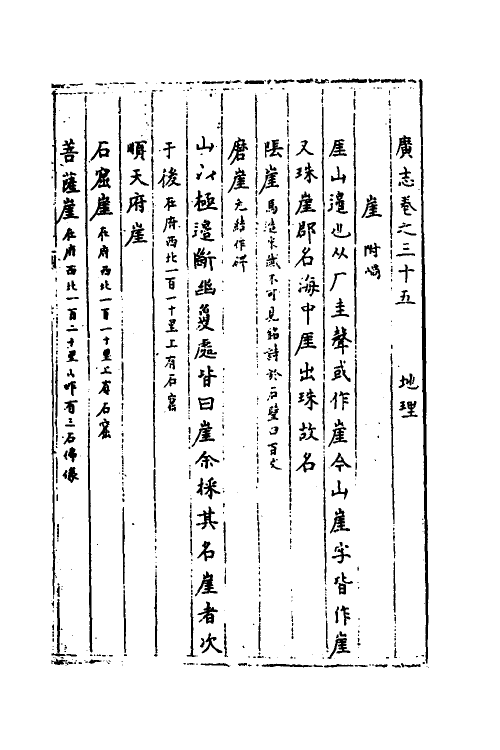 廣志卷之三十五 地理
崖 附嵓
厓山邉也从厂圭聲或作崖今山崖字皆作崖
又珠崖郡名海中厓出珠故名
馬造宋纖不可見銘詩於石壁曰百丈
磨崖元結作碑
山以極邉斷幽處皆曰崖余採其名崖者次
于後在府西北一百一十里上有石窟
順天府崖
石窟崖在府西北一百一十里上有石窟
菩薩崖在府西北一百二十里山有三石佛像